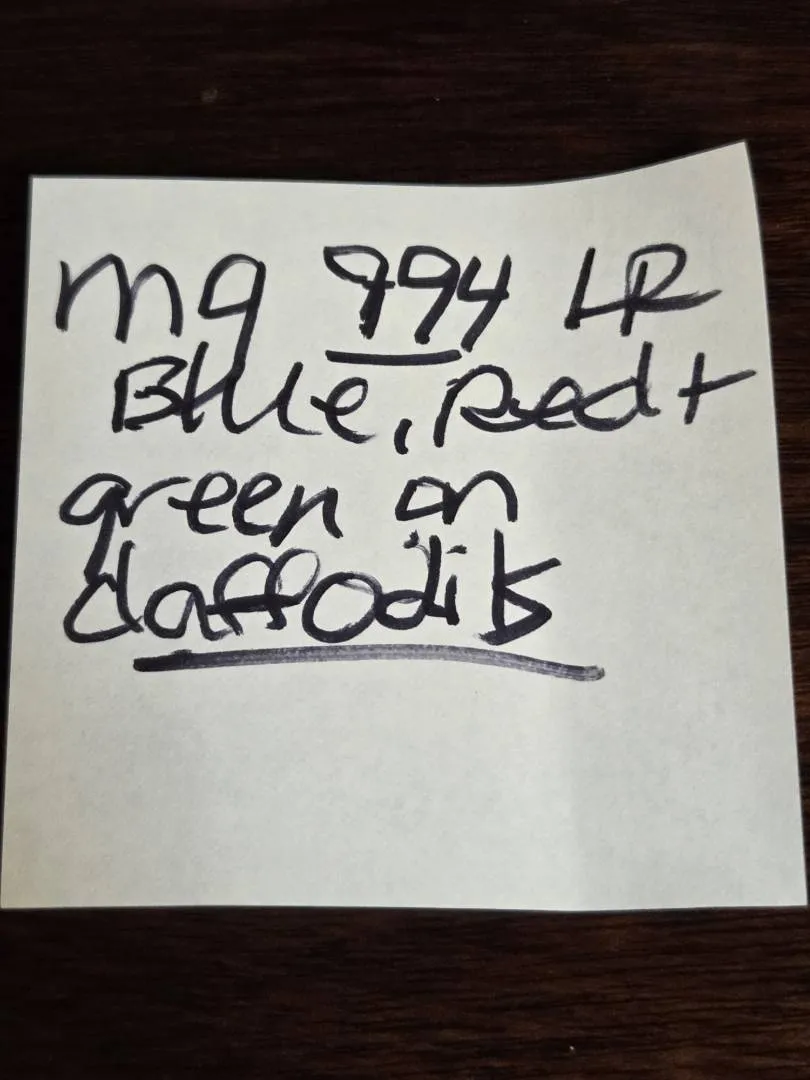 mq 994 LR
Blue, Red +
green on
daffodils